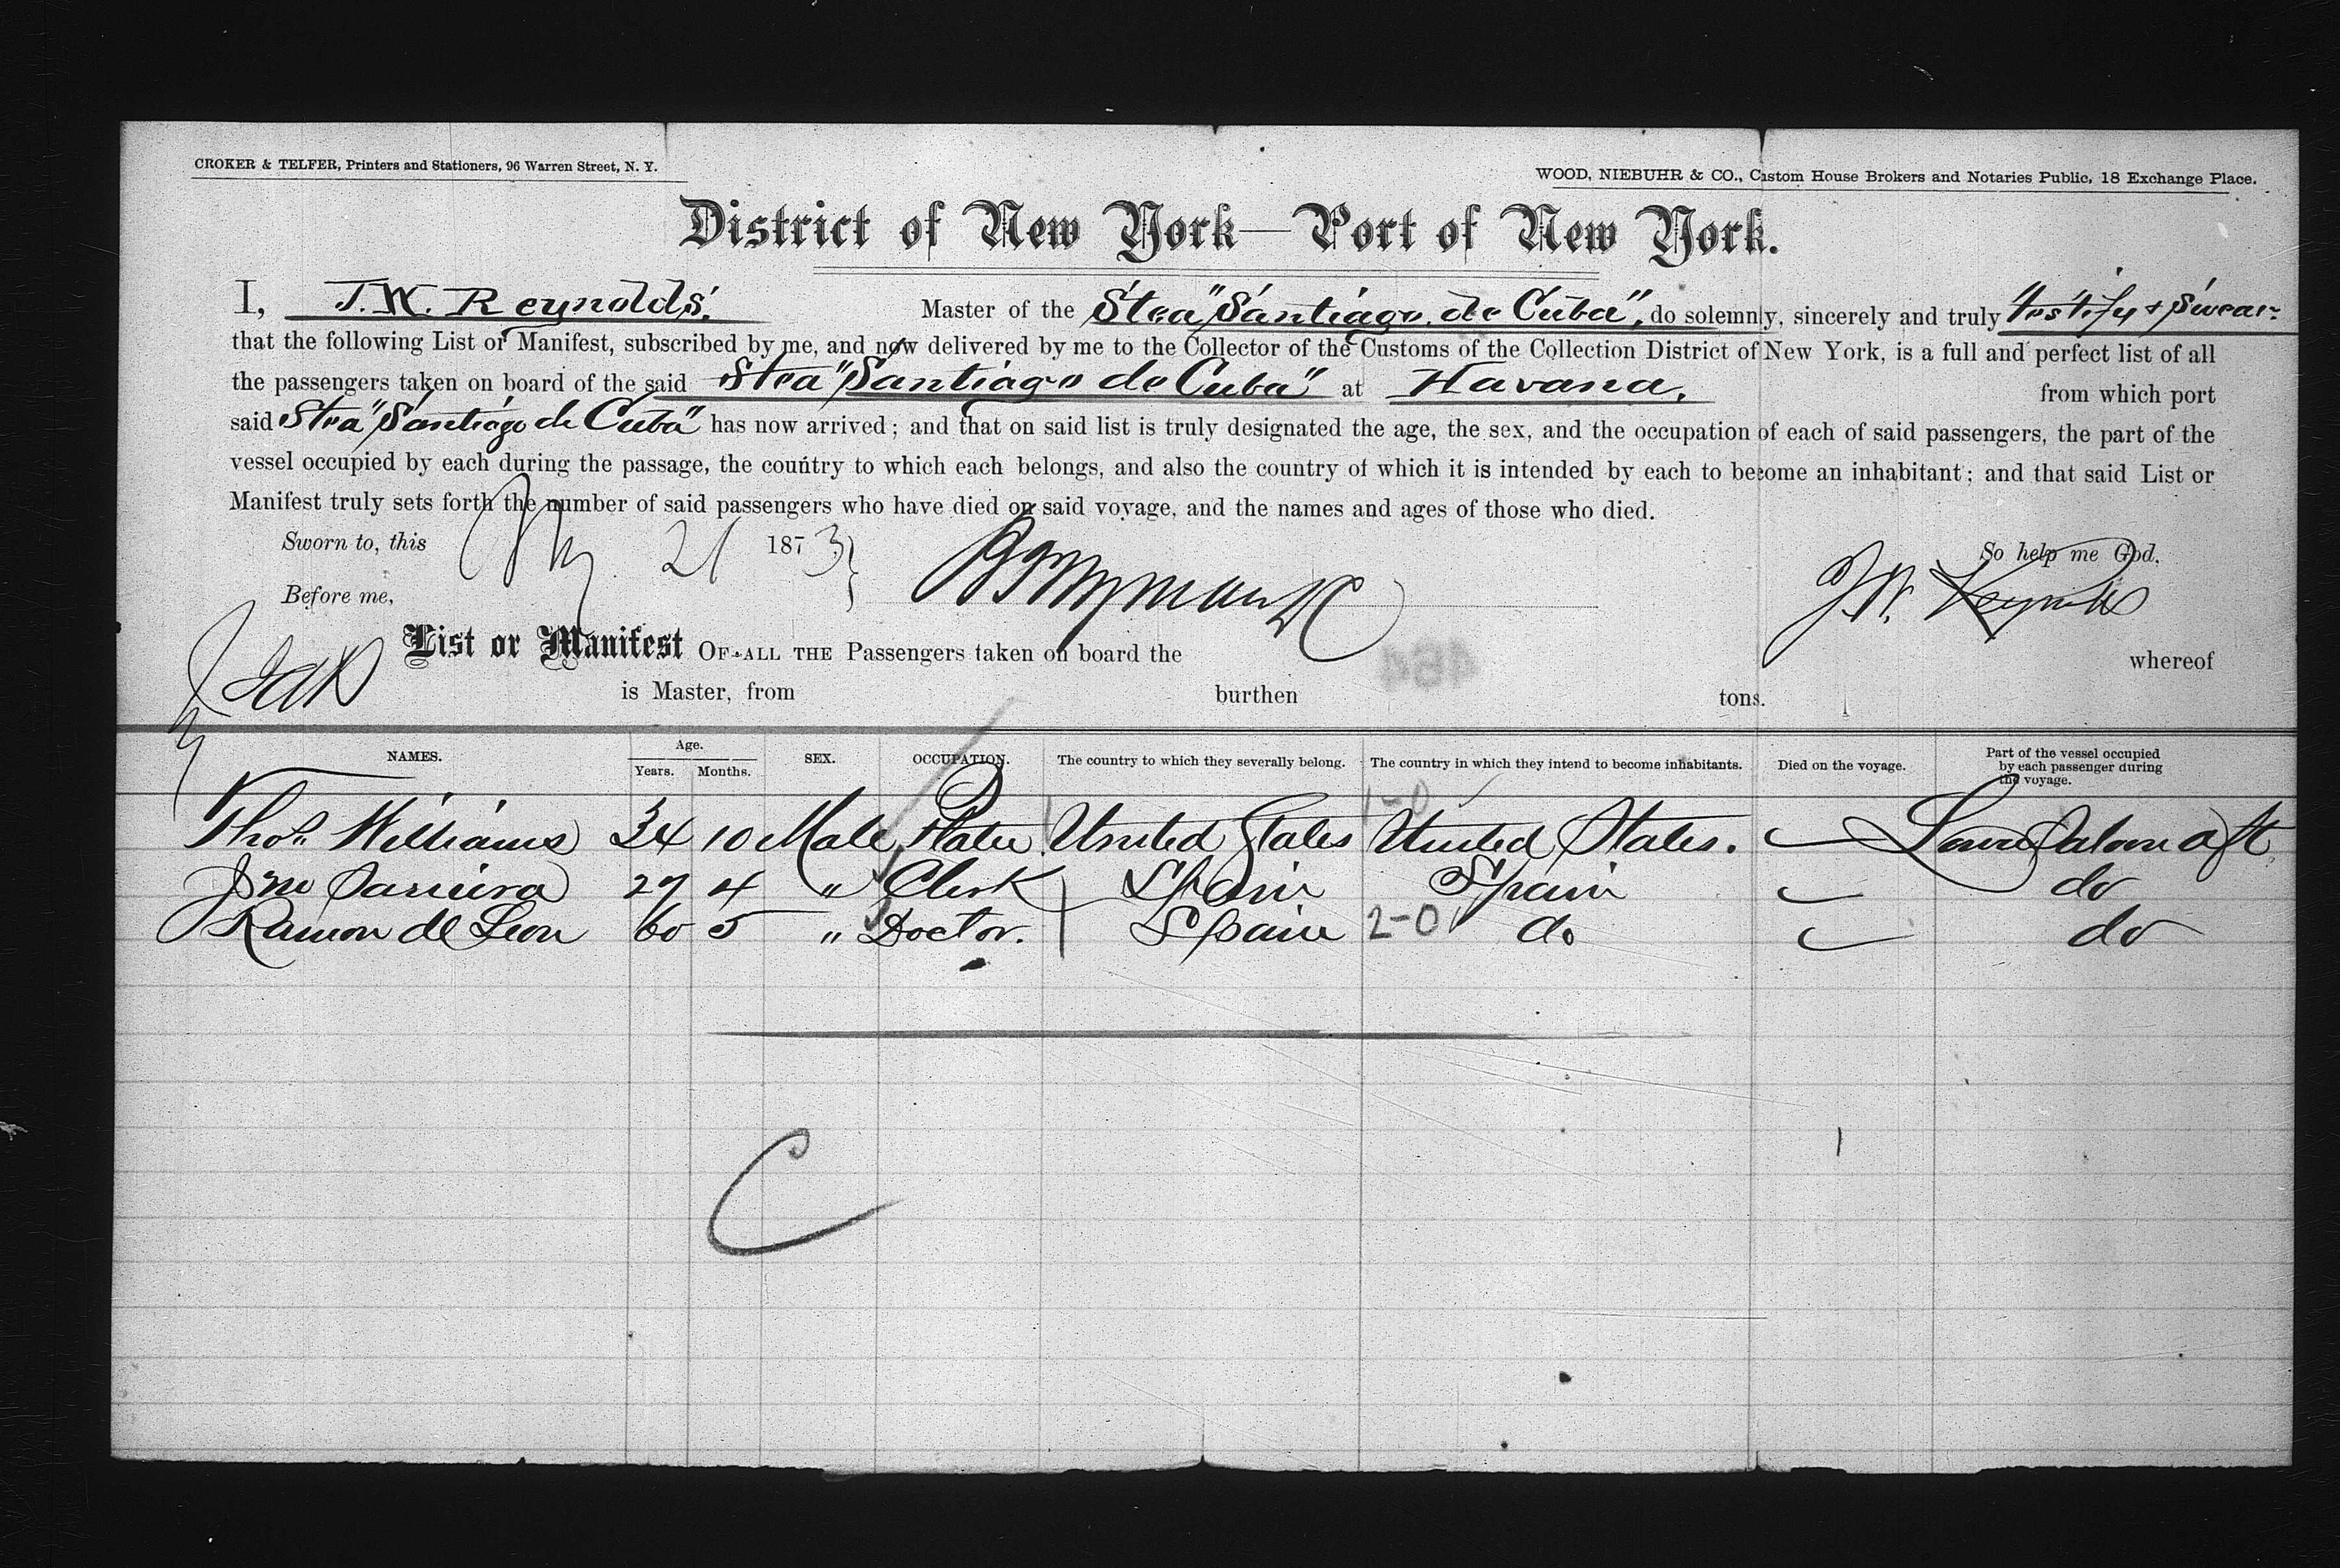 CROKER & TELFER, Printers and Stationers, 96 Warren Street, N. Y.
WOOD, NIEBUHR & CO., Custom House Brokers and Notaries Public, 18 Exchange Place.
District of New York—Port of New York.
I, J. W. Reynolds. Master of the Stea "Santiago de Cuba", do solemnly, sincerely and truly testify & swear
that the following List or Manifest, subscribed by me, and now delivered by me to the Collector of the Customs of the Collection District of New York, is a full and perfect list of all
the passengers taken on board of the said Stea "Santiago de Cuba" at Havana. from which port
said Stea "Santiago de Cuba" has now arrived; and that on said list is truly designated the age, the sex, and the occupation of each of said passengers, the part of the
vessel occupied by each during the passage, the country to which each belongs, and also the country of which it is intended by each to become an inhabitant; and that said List or
Manifest truly sets forth the number of said passengers who have died on said voyage, and the names and ages of those who died.
Sworn to, this 21 1873
So help me God.
Before me, J. W. Reynolds
List or Manifest OF ALL THE Passengers taken on board the whereof
is Master, from burthen tons.
NAMES. Age. Years. Months. SEX. OCCUPATION. The country to which they severally belong. The country in which they intend to become inhabitants. Died on the voyage. Part of the vessel occupied by each passenger during the voyage.
1-0
Thos. Williams 34 10 Male United States United States. Lower Saloon aft
27 4 " Clerk Spain Spain do
Ramon de Leon 60 5 " Doctor. Spain 2-0 do do
C